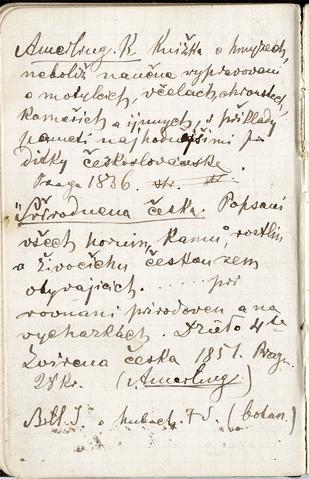 Amerling. K Knížka o hmyzech,
neboliž naučné vypravování
o motýlcích, včelách, chroustech,
komářích a jiných, s příklady
paměti najhodnějšími pro
dítky českoslovanské.
Praga 1836. str.
"Přirodnena česká. Popsání
všech hornin, kamů, rostlin
a živočichů českou zem
obývajících. ...... při
rovnání přírodoven a na
vycházkách. Dzieło 4te
Zvířena česká 1851. Praga.
28 kr. (Amerling)
Bibl. J. o hubách. 7 d. (botan.)